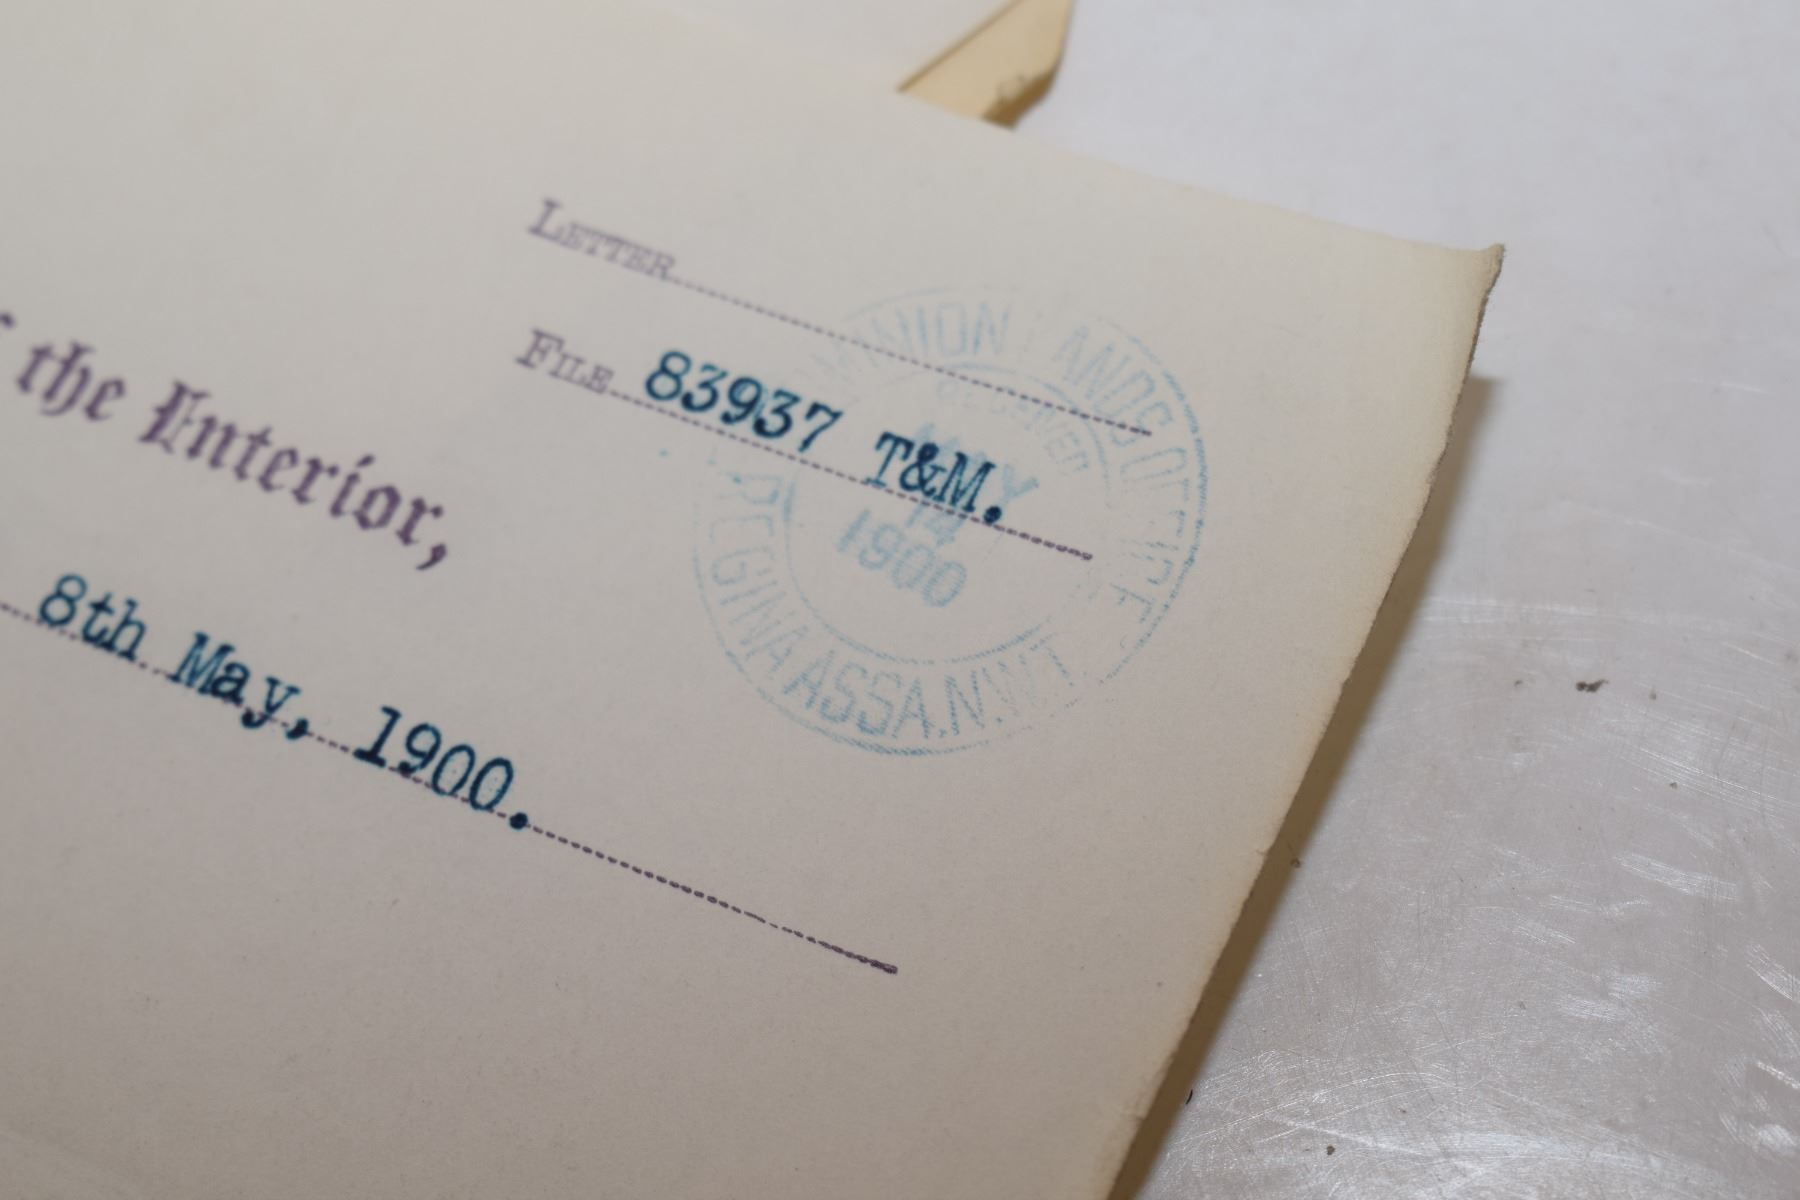 LETTER
FILE 83937 T&M.
DOMINION LANDS OFFICE
RECEIVED
MAY
14
1900
REGINA ASSA. N.W.T.
f the Interior,
8th May, 1900.